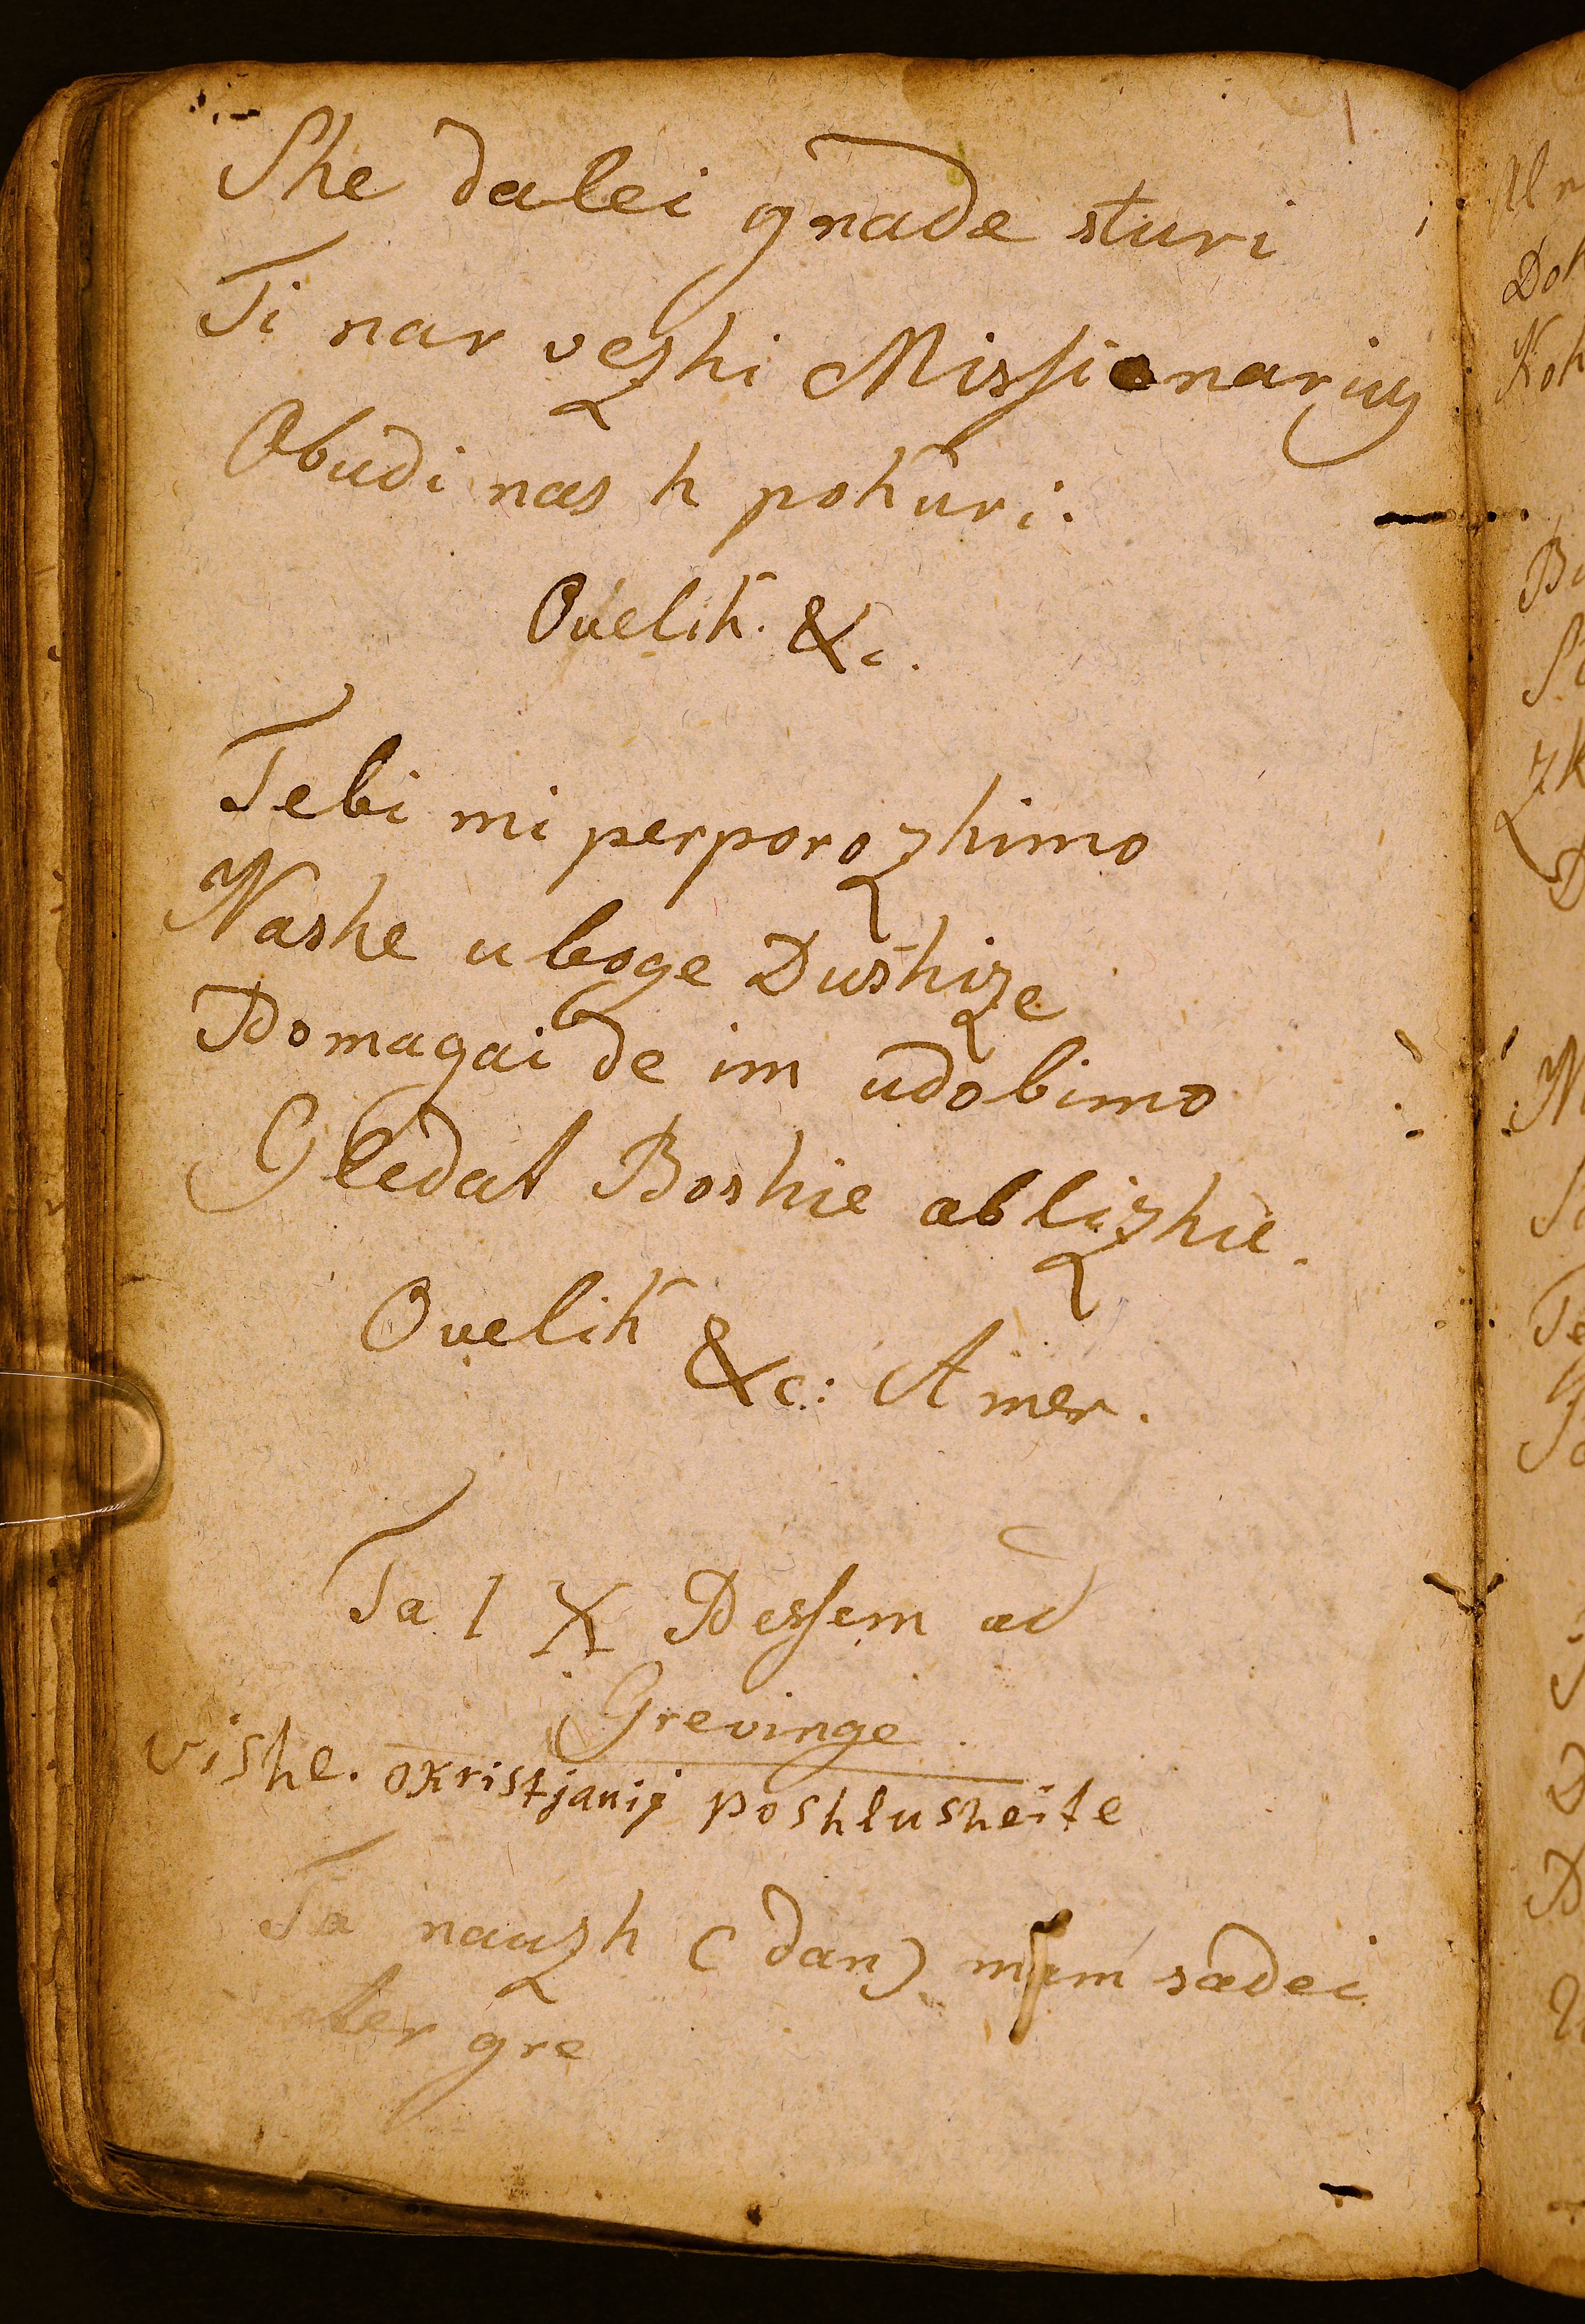 She dalei gnade sturi
Ti nar vezhi Missionarius
Obudi nas k pokuri.
Ovelik &c.
Tebi mi perporozhimo
Nashe uboge Dushize
Pomagai de im udobimo
Gledat Boshie oblizhie.
Ovelik &c: Amen.
Ta 1 X Pessem od
Grevinge
vishe. okristjanij poshlusheite
Ta nauzh (dan) mem sodei
gre